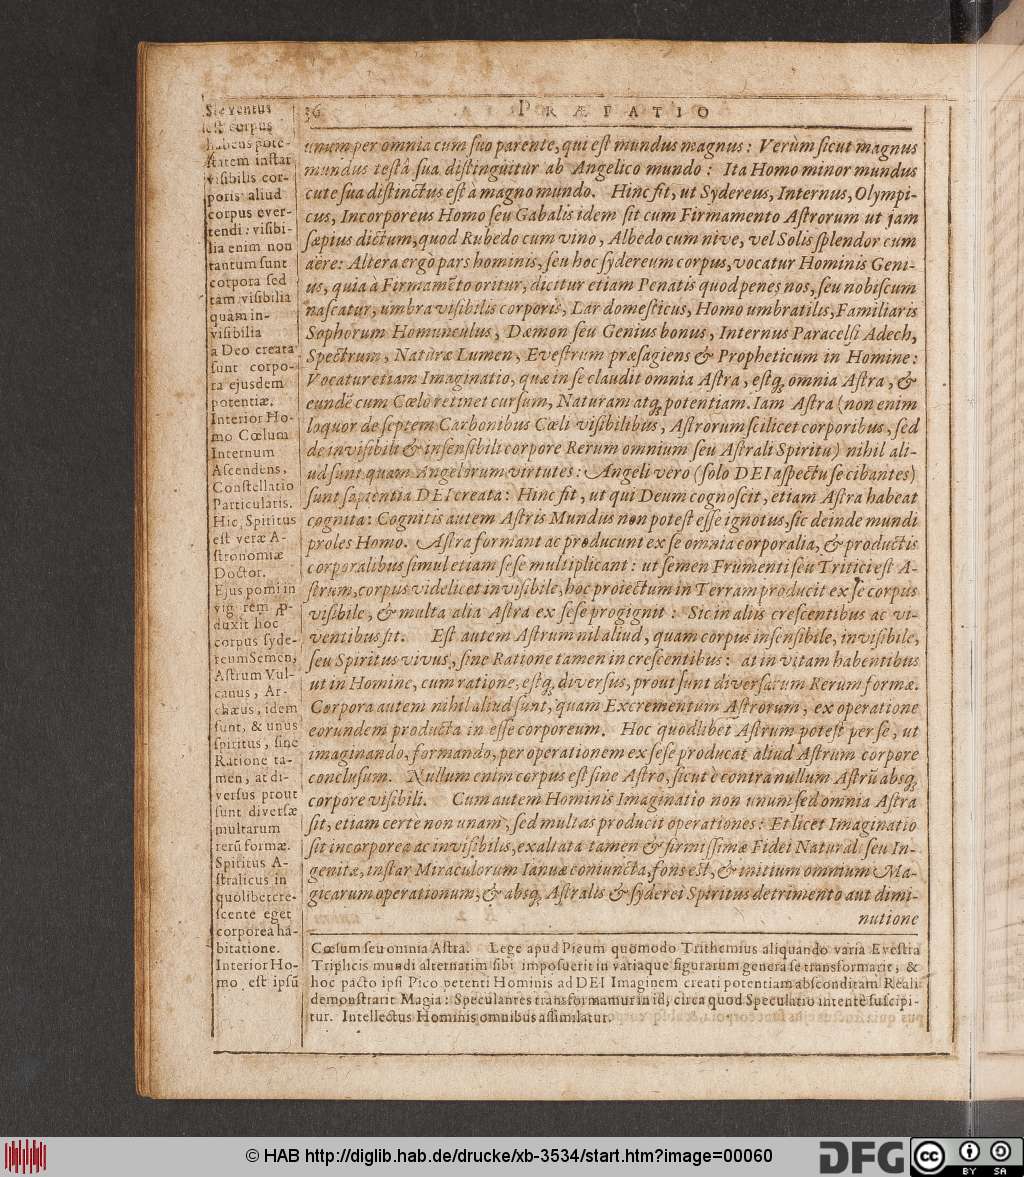 36 PRÆFATIO
unum per omnia cum suo parente, qui est mundus magnus: Verùm sicut magnus
mundus testâ sua distinguitur ab Angelico mundo: Ita Homo minor mundus
cute sua distinctus est à magno mundo. Hinc fit, ut Sydereus, Internus, Olympi-
cus, Incorporeus Homo seu Gabalis idem sit cum Firmamento Astrorum ut jam
sæpius dictum, quod Rubedo cum vino, Albedo cum nive, vel Solis splendor cum
aëre: Altera ergo pars hominis, seu hoc sydereum corpus, vocatur Hominis Geni-
us, quia à Firmamẽto oritur, dicitur etiam Penatis quod penes nos, seu nobiscum
nascatur, umbra visibilis corporis, Lar domesticus, Homo umbratilis, Familiaris
Sophorum Homunculus, Dæmon seu Genius bonus, Internus Paracelsi Adech,
Spectrum, Naturæ Lumen, Evestrum præsagiens & Propheticum in Homine:
Vocatur etiam Imaginatio, quæ in se claudit omnia Astra, estq; omnia Astra, &
eundẽ cum Cœlo retinet cursum, Naturam atq; potentiam. Iam Astra (non enim
loquor de septem Carbonibus Cœli visibilibus, Astrorum scilicet corporibus, sed
de invisibili & insensibili corpore Rerum omnium seu Astrali Spiritu) nihil ali-
ud sunt quam Angelorum virtutes: Angeli vero (solo DEI aspectu se cibantes)
sunt sapientia DEI creata: Hinc fit, ut qui Deum cognoscit, etiam Astra habeat
cognita: Cognitis autem Astris Mundus non potest esse ignotus, sic deinde mundi
proles Homo. Astra formant ac producunt ex se omnia corporalia, & productis
corporalibus simul etiam sese multiplicant: ut semen Frumenti seu Tritici est A-
strum, corpus videlicet invisibile, hoc proiectum in Terram producit ex se corpus
visibile, & multa alia Astra ex sese progignit: Sic in aliis crescentibus ac vi-
ventibus fit. Est autem Astrum nil aliud, quam corpus insensibile, invisibile,
seu Spiritus vivus, sine Ratione tamen in crescentibus: at in vitam habentibus
ut in Homine, cum ratione, estq; diversus, prout sunt diversarum Rerum formæ.
Corpora autem nihil aliud sunt, quam Excrementum Astrorum, ex operatione
eorundem producta in esse corporeum. Hoc quodlibet Astrum potest per se, ut
imaginando, formando, per operationem ex sese producat aliud Astrum corpore
conclusum. Nullum enim corpus est sine Astro, sicut è contra nullum Astrũ absq;
corpore visibili. Cum autem Hominis Imaginatio non unum sed omnia Astra
sit, etiam certe non unam, sed multas producit operationes: Et licet Imaginatio
sit incorporea ac invisibilis, exaltata tamen & firmissimæ Fidei Naturali seu In-
genitæ, instar Miraculorum Ianuæ coniuncta, fons est, & initium omnium Ma-
gicarum operationum, & absq; Astralis & syderei Spiritus detrimento aut dimi-
nutione
Sic ventus
est corpus
habens pote-
statem instar
visibilis cor-
poris aliud
corpus ever-
tendi: visibi-
lia enim non
tantum sunt
corpora sed
tam visibilia
quàm in-
visibilia
a Deo creata
sunt corpo-
ra ejusdem
potentiæ.
Interior Ho-
mo Cœlum
Internum
Ascendens,
Constellatio
Particularis.
Hic Spiritus
est veræ A-
stronomiæ
Doctor.
Ejus pomi in
duxit hoc
corpus syde-
reum Semen,
Astrum Vul-
canus, Ar-
chæus, idem
sunt, & unus
spiritus, sine
Ratione ta-
men, at di-
versus prout
sunt diversæ
multarum
rerũ formæ.
Spiritus A-
stralicus in
quolibet cre-
scente eget
corporea ha-
bitatione.
Interior Ho-
mo est ipsũ
Cœlum seu omnia Astra. Lege apud Picum quomodo Trithemius aliquando varia Evestra
Triplicis mundi alternatim sibi imposuerit in variaque figurarum genera se transformarit, &
hoc pacto ipsi Pico petenti Hominis ad DEI Imaginem creati potentiam absconditam Reali
demonstrarit Magia: Speculantes transformamur in id, circa quod Speculatio intentè suscipi-
tur. Intellectus Hominis omnibus assimilatur.
© HAB http://diglib.hab.de/drucke/xb-3534/start.htm?image=00060
DFG
cc BY SA